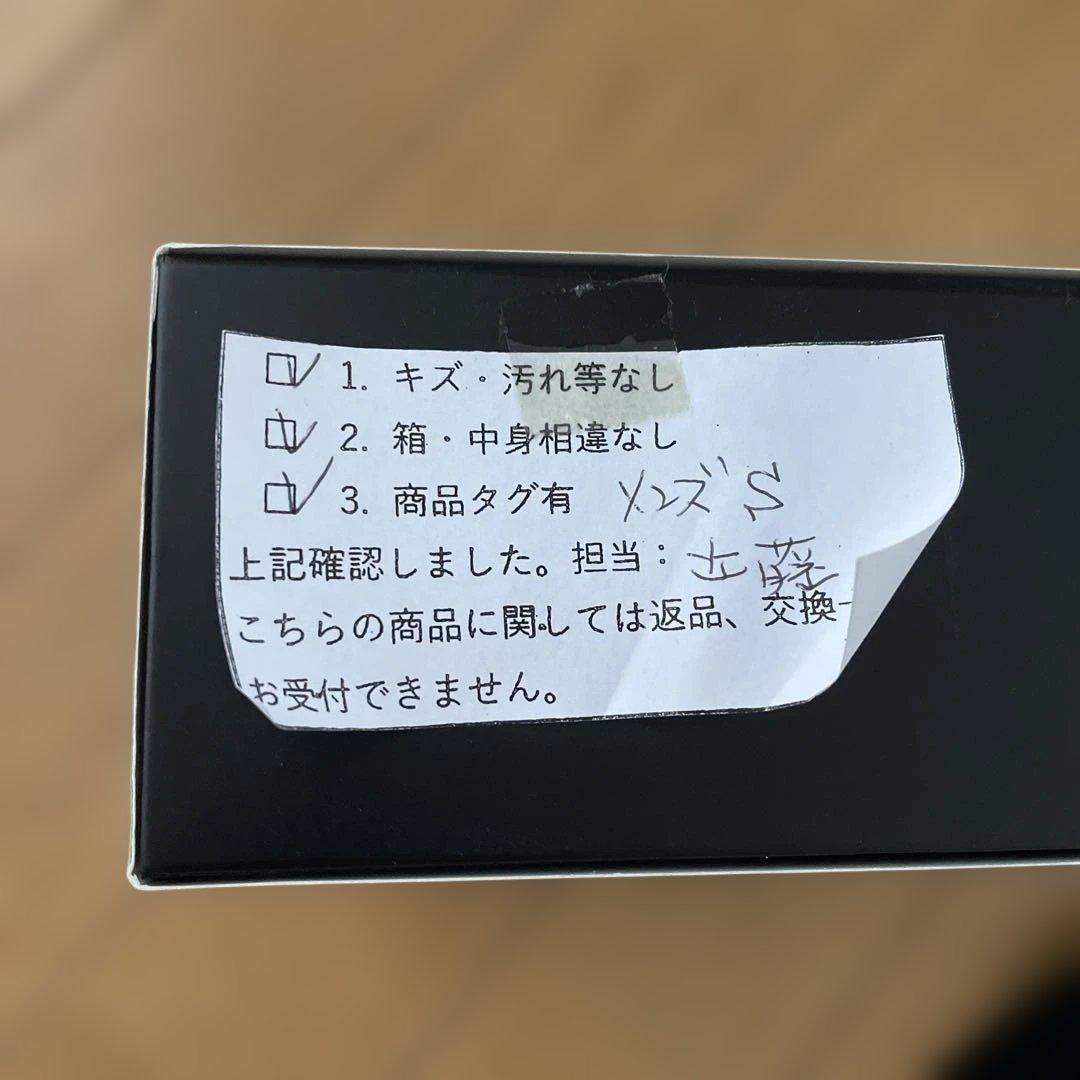 ☑ 1. キズ・汚れ等なし
☑ 2. 箱・中身相違なし
☑ 3. 商品タグ有 メンズ S
上記確認しました。担当：
こちらの商品に関しては返品、交換
お受付できません。